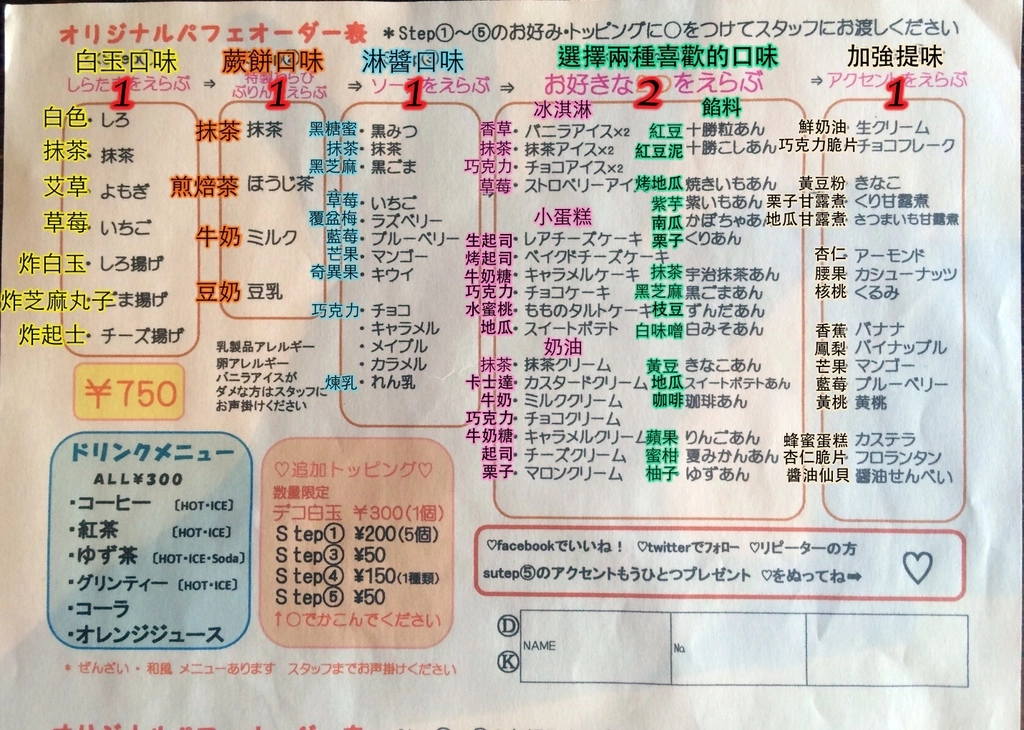 オリジナルパフェオーダー表 *Step①～⑤のお好み・トッピングに○をつけてスタッフにお渡しください
白玉口味 蕨餅口味 淋醬口味 選擇兩種喜歡的口味 加強提味
しらたまをえらぶ ⇒ 特製わらび ⇒ ソースをえらぶ ⇒ お好きな をえらぶ ⇒ アクセントをえらぶ
ぷりんをえらぶ
1 1 1 2 1
白色・しろ
抹茶・抹茶
艾草・よもぎ
草莓・いちご
炸白玉・しろ揚げ
炸芝麻丸子・ごま揚げ
炸起士・チーズ揚げ
抹茶 抹茶
煎焙茶 ほうじ茶
牛奶 ミルク
豆奶 豆乳
黑糖蜜・黒みつ
抹茶・抹茶
黑芝麻・黒ごま
草莓・いちご
覆盆梅・ラズベリー
藍莓・ブルーベリー
芒果・マンゴー
奇異果・キウイ
巧克力・チョコ
・キャラメル
・メイプル
・カラメル
煉乳・れん乳
冰淇淋
香草・バニラアイス×2
抹茶・抹茶アイス×2
巧克力・チョコアイス×2
草莓・ストロベリーアイ
小蛋糕
生起司・レアチーズケーキ
烤起司・ベイクドチーズケーキ
牛奶糖・キャラメルケーキ
巧克力・チョコケーキ
水蜜桃・もものタルトケーキ
地瓜・スイートポテト
奶油
抹茶・抹茶クリーム
卡士達・カスタードクリーム
牛奶・ミルククリーム
巧克力・チョコクリーム
牛奶糖・キャラメルクリーム
起司・チーズクリーム
栗子・マロンクリーム
餡料
紅豆 十勝粒あん
紅豆泥 十勝こしあん
烤地瓜 焼きいもあん
紫芋 紫いもあん
南瓜 かぼちゃあん
栗子 くりあん
抹茶 宇治抹茶あん
黑芝麻 黒ごまあん
枝豆 ずんだあん
白味噌 白みそあん
黃豆 きなこあん
地瓜 スイートポテトあん
咖啡 珈琲あん
蘋果 りんごあん
蜜柑 夏みかんあん
柚子 ゆずあん
鮮奶油 生クリーム
巧克力脆片 チョコフレーク
黃豆粉 きなこ
栗子甘露煮 くり甘露煮
地瓜甘露煮 さつまいも甘露煮
杏仁 アーモンド
腰果 カシューナッツ
核桃 くるみ
香蕉 バナナ
鳳梨 パイナップル
芒果 マンゴー
藍莓 ブルーベリー
黃桃 黄桃
蜂蜜蛋糕 カステラ
杏仁脆片 フロランタン
醬油仙貝 醤油せんべい
¥750
乳製品アレルギー
卵アレルギー
バニラアイスが
ダメな方はスタッフに
お声掛けください
ドリンクメニュー
ALL¥300
・コーヒー [HOT・ICE]
・紅茶 [HOT・ICE]
・ゆず茶 [HOT・ICE・Soda]
・グリンティー [HOT・ICE]
・コーラ
・オレンジジュース
♡追加トッピング♡
数量限定
デコ白玉 ¥300(1個)
Step① ¥200(5個)
Step③ ¥50
Step④ ¥150(1種類)
Step⑤ ¥50
↑○でかこんでください
♡facebookでいいね! ♡twitterでフォロー ♡リピーターの方
sutep⑤のアクセントもうひとつプレゼント ♡をぬってね➡ ♡
Ⓓ
Ⓚ
NAME
No.
* ぜんざい・和風 メニューあります スタッフまでお声掛けください